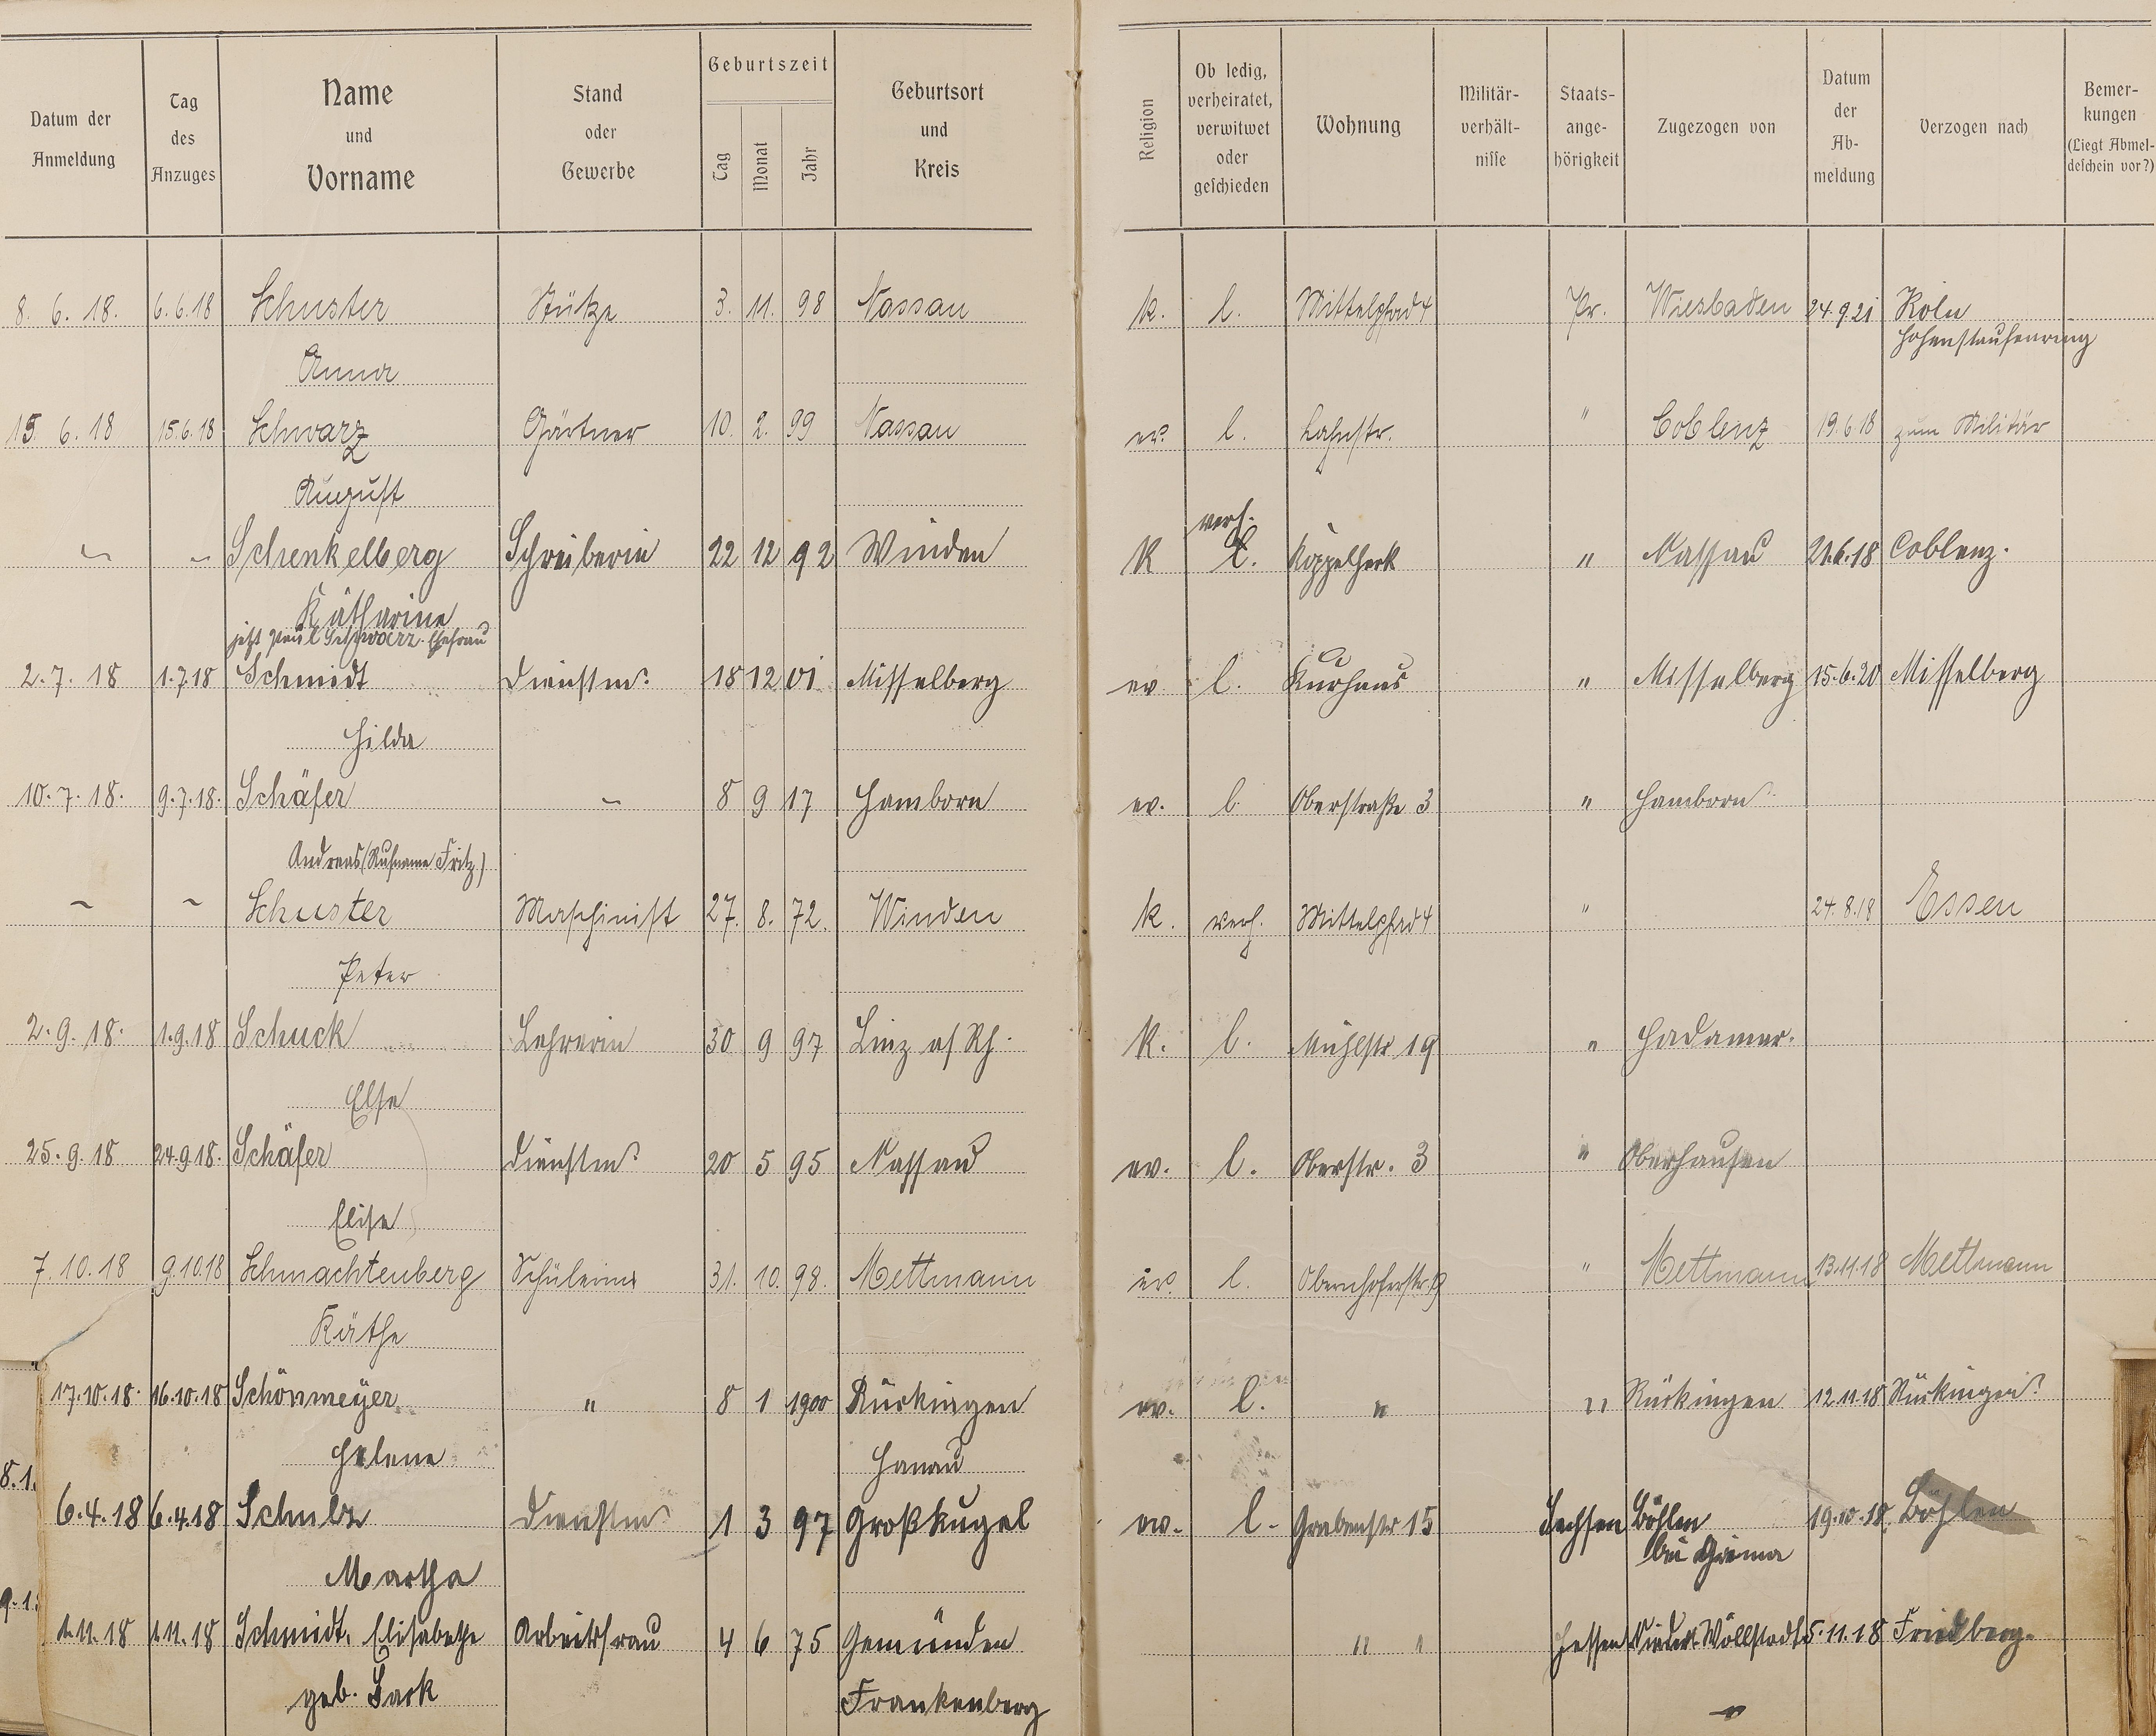 Datum der Anmeldung
Tag des Anzuges
Name und Vorname
Stand oder Gewerbe
Geburtszeit
Tag Monat Jahr
Geburtsort und Kreis
Religion
Ob ledig, verheiratet, verwitwet oder geschieden
Wohnung
Militär-verhält-nisse
Staats-ange-hörigkeit
Zugezogen von
Datum der Ab-meldung
Verzogen nach
Bemer-kungen (Liegt Abmel-deschein vor?)
8. 6. 18. 6.6.18 Schuster Stütze 3. 11. 98 Nassau k. l. Mittelpfad 4 Pr. Wiesbaden 24.9.21 Köln
Hohenstaufenring
Anna
15. 6. 18 15.6.18 Schwarz Gärtner 10. 2. 99 Nassau ev. l. Lahnstr. " Coblenz 19.6.18 zum Militär
August
verh.
– – Schenkelberg Schreiberin 22 12 92 Winden K l. Koppelheck " Nassau 21.6.18 Coblenz.
Katharine
jetzt Paul Schwarz Ehefrau
2. 7. 18 1.7.18 Schmidt Dienstm. 18 12 01 Misselberg ev l. Kurhaus " Misselberg 15.6.20 Misselberg
Hilda
10. 7. 18. 9.7.18. Schäfer – 8 9 17 Hamborn ev. l. Oberstraße 3 " Hamborn
Andreas (Rufname Fritz)
– – Schuster Maschinist 27. 8. 72. Winden k. verh. Mittelpfad 4 " 24.8.18 Essen
Peter
2. 9. 18. 1.9.18 Schuck Lehrerin 30 9 97 Linz a/Rh. K. l. Mühlstr 19 " Hadamar.
Else
25. 9. 18 24.9.18. Schäfer Dienstm. 20 5 95 Nassau ev. l. Oberstr. 3 " Oberhausen
Elise
7. 10. 18 9.10.18 Schmachtenberg Schülerin 31. 10. 98. Mettmann ev. l. Obernhoferstr. 9 " Mettmann 13.11.18 Mettmann
Käthe
17.10.18. 16.10.18 Schönmeyer " 8 1 1900 Rückingen ev. l. " " Rückingen 12.11.18 Rückingen
Helene Hanau
8.1.
6.4.18 6.4.18 Schulz Dienstm. 1 3 97 Großkugel ev. l. Grabenstr 15 Sachsen Böhlen 19.10.18. Böhlen
bei Grima
Martha
9.1.
1.11.18 1.11.18 Schmidt, Elisabethe Arbeitsfrau 4 6 75 Gemünden " " Hessen Nieder-Wöllstadt 5.11.18 Friedberg.
geb. Frankenberg